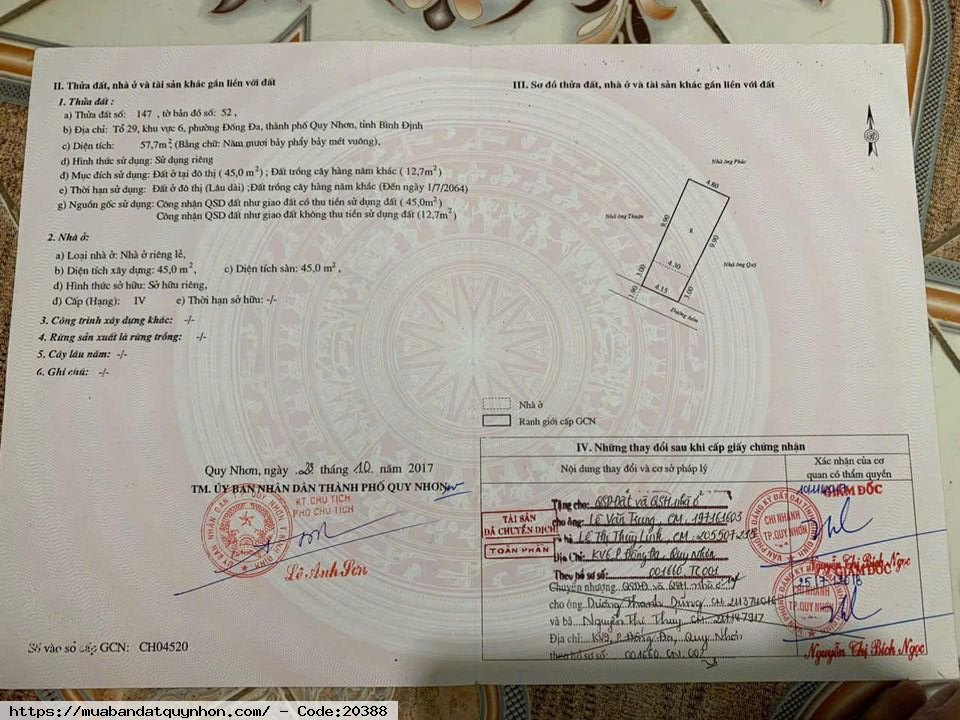 II. Thửa đất, nhà ở và tài sản khác gắn liền với đất
1. Thửa đất :
a) Thửa đất số: 147 , tờ bản đồ số: 52 ,
b) Địa chỉ: Tổ 29, khu vực 6, phường Đống Đa, thành phố Quy Nhơn, tỉnh Bình Định
c) Diện tích: 57,7m² (Bằng chữ: Năm mươi bảy phẩy bảy mét vuông),
d) Hình thức sử dụng: Sử dụng riêng
đ) Mục đích sử dụng: Đất ở tại đô thị ( 45,0 m²) ; Đất trồng cây hàng năm khác ( 12,7m²)
e) Thời hạn sử dụng: Đất ở đô thị (Lâu dài) ;Đất trồng cây hàng năm khác (Đến ngày 1/7/2064)
g) Nguồn gốc sử dụng: Công nhận QSD đất như giao đất có thu tiền sử dụng đất ( 45,0m²)
Công nhận QSD đất như giao đất không thu tiền sử dụng đất (12,7m²)
2. Nhà ở:
a) Loại nhà ở: Nhà ở riêng lẻ,
b) Diện tích xây dựng: 45,0 m², c) Diện tích sàn: 45,0 m² ,
d) Hình thức sở hữu: Sở hữu riêng,
đ) Cấp (Hạng): IV e) Thời hạn sở hữu: -/-
3. Công trình xây dựng khác: -/-
4. Rừng sản xuất là rừng trồng: -/-
5. Cây lâu năm: -/-
6. Ghi chú: -/-
Quy Nhơn, ngày 23 tháng 10 năm 2017
TM. ỦY BAN NHÂN DÂN THÀNH PHỐ QUY NHƠN
KT. CHỦ TỊCH
PHÓ CHỦ TỊCH
Lê Anh Sơn
Số vào sổ cấp GCN: CH04520
III. Sơ đồ thửa đất, nhà ở và tài sản khác gắn liền với đất
Nhà ông Phúc
4.80
Nhà ông Thuận
9.90
9.90
Nhà ông Quý
4.30
3.00
3.00
4.15
1.90
Đường hẻm
Nhà ở
Ranh giới cấp GCN
IV. Những thay đổi sau khi cấp giấy chứng nhận
Nội dung thay đổi và cơ sở pháp lý
Xác nhận của cơ quan có thẩm quyền
TÀI SẢN
ĐÃ CHUYỂN DỊCH
TOÀN PHẦN
Tặng cho: QSDĐất và QSH nhà ở
cho ông: Lê Văn Trung, CM. 197161603
và bà Lê Thị Thùy Linh, CM. 205507235
Địa Chỉ: KV6, P. Đống Đa, Quy Nhơn
Theo hồ sơ số: 001660. TC001
GIÁM ĐỐC
CHI NHÁNH
TP.QUY NHƠN
Nguyễn Thị Bích Ngọc
Chuyển nhượng QSDĐ và QSH nhà ở
cho ông: Dương Thanh Dũng
và bà Nguyễn Thị Thủy
Địa chỉ: KV9, P. Đống Đa, Quy Nhơn
theo hồ sơ số: 001660. CN. 002
25/7/2018
GIÁM ĐỐC
CHI NHÁNH
TP.QUY NHƠN
Nguyễn Thị Bích Ngọc
https://muabandatquynhon.com/ - Code:20388